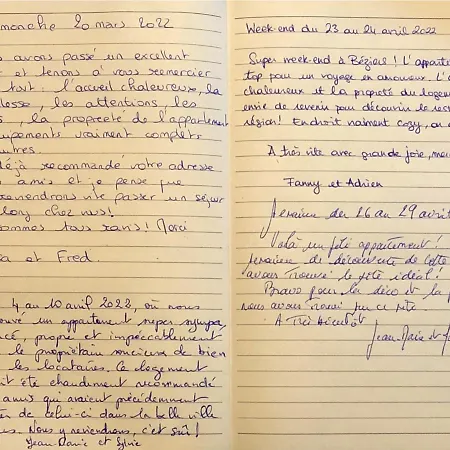 manche 20 mars 2022
avons passé un excellent
et tenons à vous remercier
tout : l'accueil chaleureux, la
les attentions, les
, la propreté de l'appartement
uipements vraiment complets
utres.
déjà recommandé votre adresse
amis et je pense que
reviendrons vite passer un séjour
long chez vous!
sommes tous ravis! Merci
et Fred.
4 au 10 avril 2022, où nous
ouvé un appartement super sympa,
cé, propre et impeccablement
le propriétaire soucieux de bien
les locataires. Ce logement
it été chaudement recommandé
amis qui avaient précédemment
de celui-ci dans la belle ville
Nous y reviendrons, c'est sûr!
Jean-Marie et Sylvie
Week-end du 23 au 24 avril 2022
Super week-end à Béziers ! L'apparte
top pour un voyage en amoureux. L'a
chaleureux et la propreté du logem
envie de revenir pour découvrir le res
région! Endroit vraiment cozy, on
A très vite avec grande joie, mer
Fanny et Adrien
Semaine du 26 au 29 avril
Voilà un joli appartement!
semaine de découverte de cette
avons trouvé le gîte idéal!
Bravo pour la déco et la
nous avons trouvé sur ce site.
A Très bientôt
Jean-Marie et